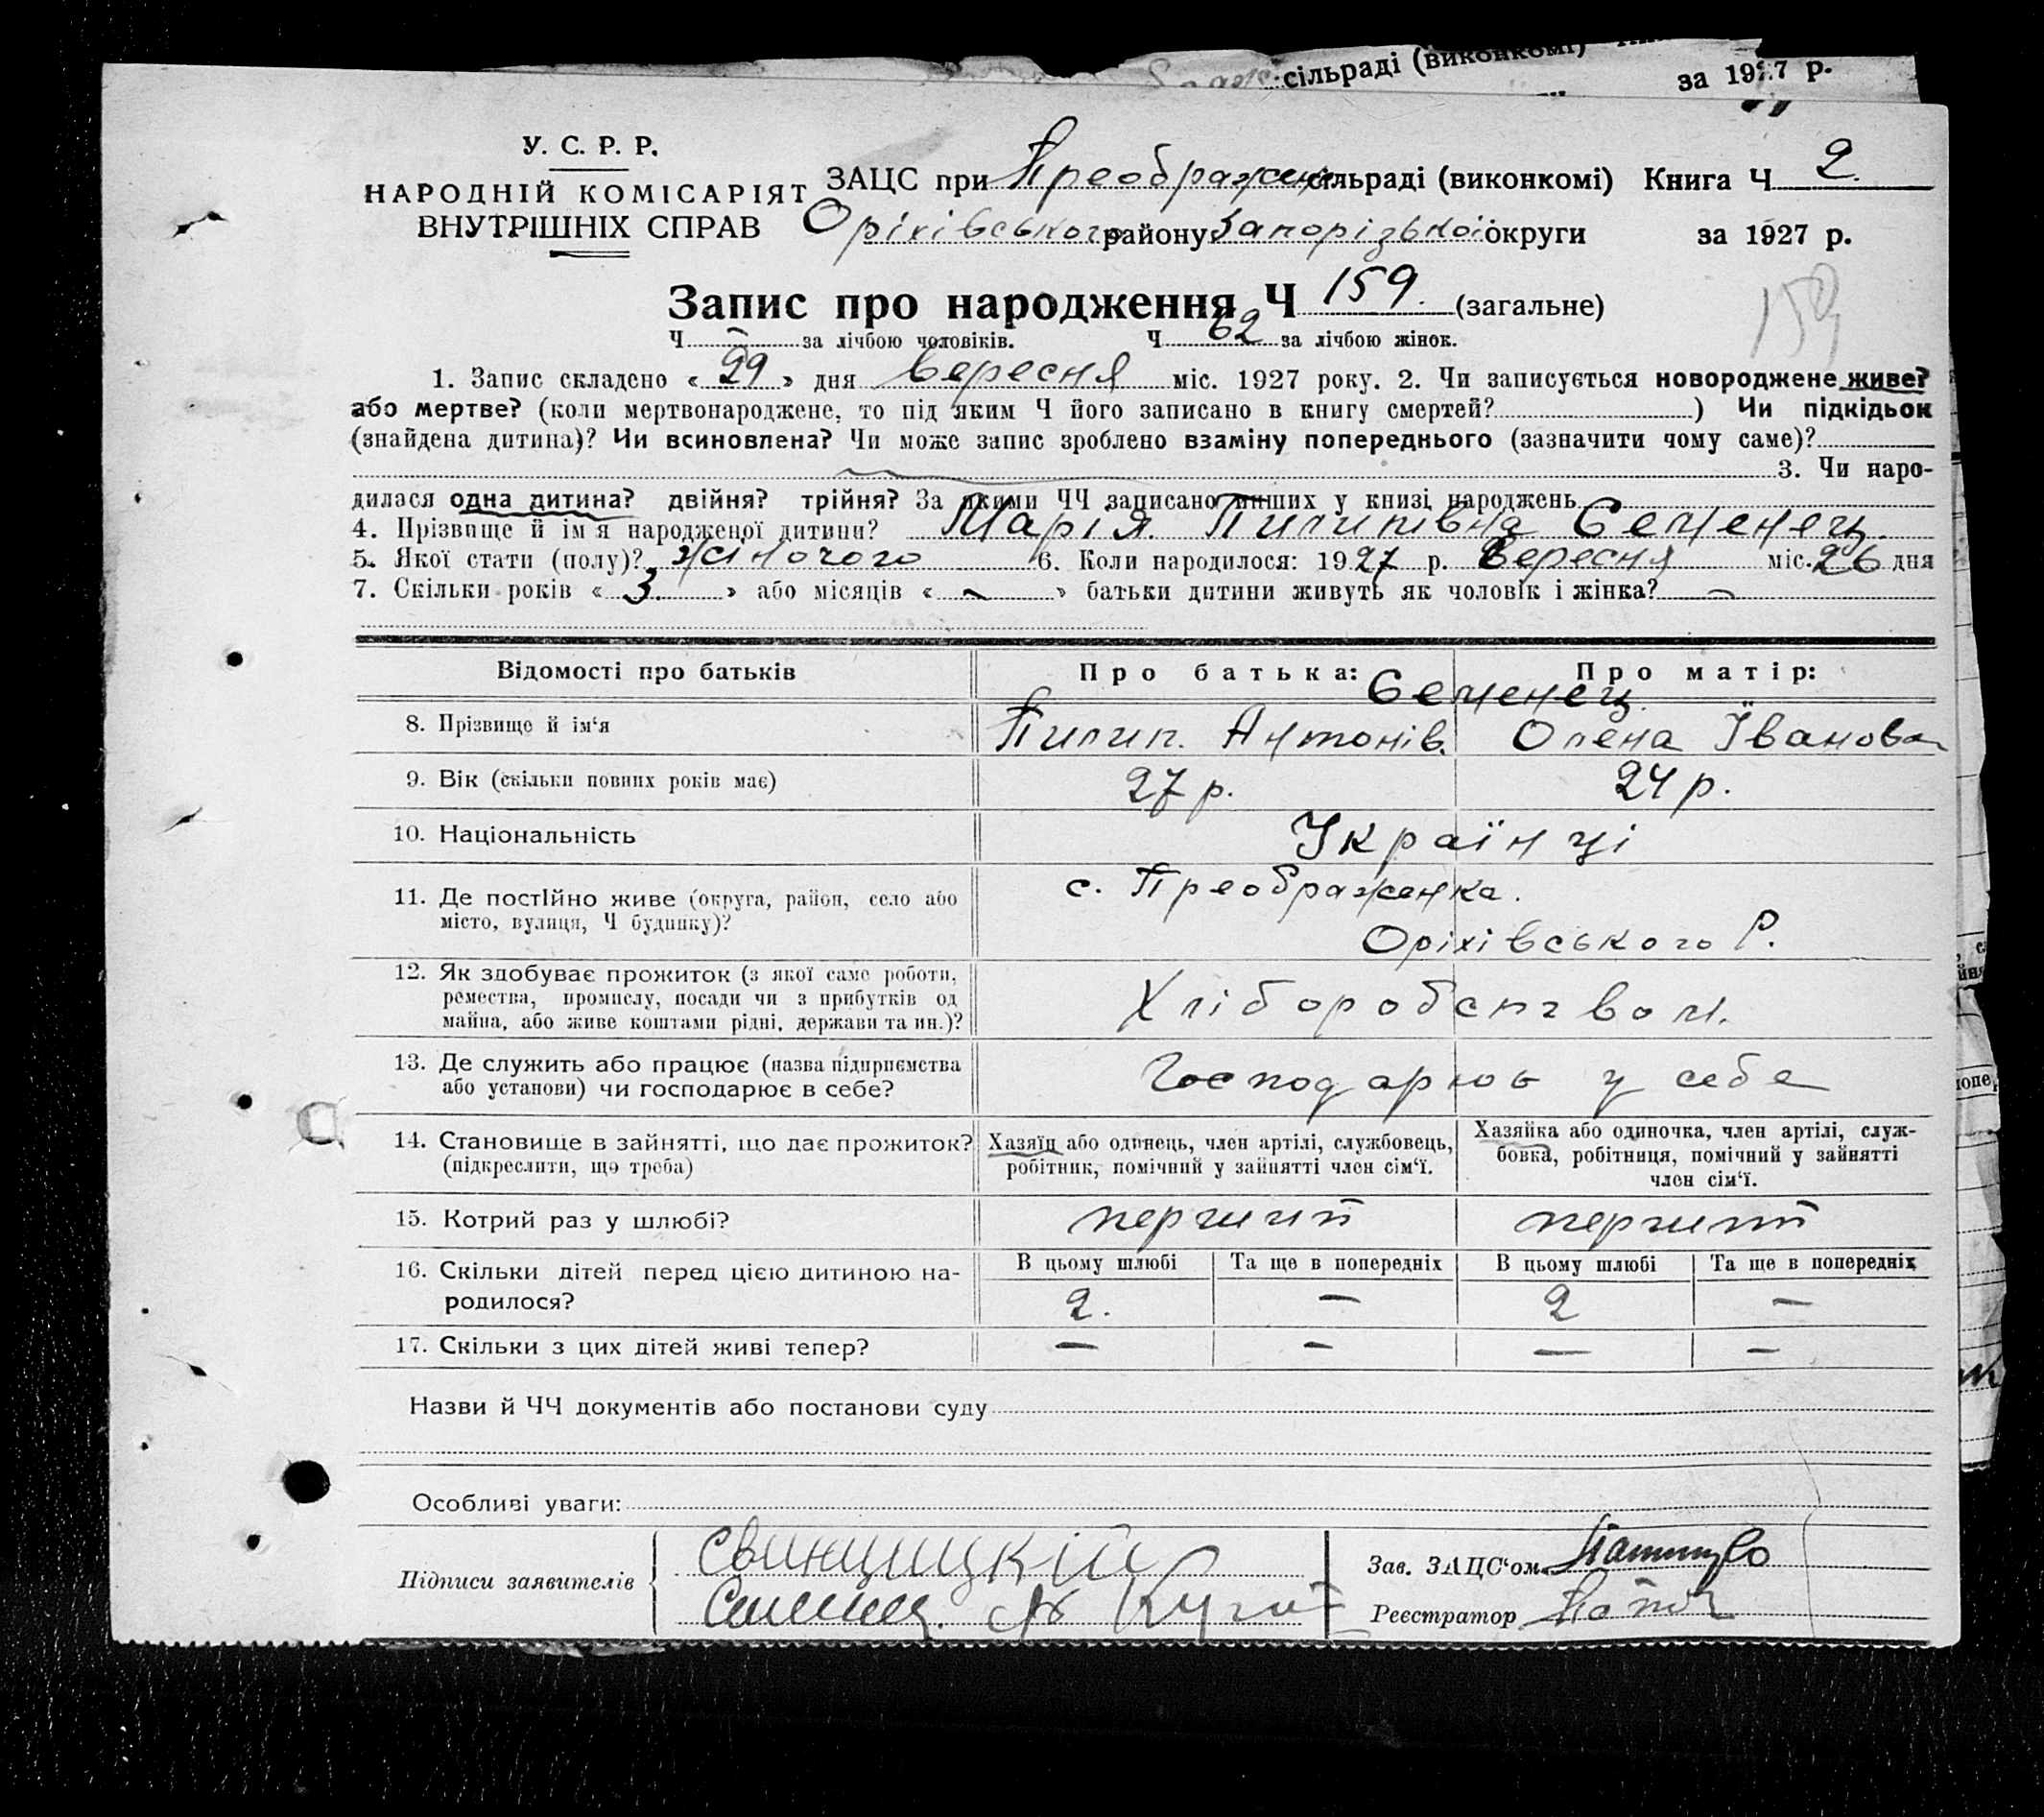 сільраді (виконкомі)
за 1927 р.
У. С. Р. Р.
НАРОДНІЙ КОМІСАРІЯТ
ВНУТРІШНІХ СПРАВ
ЗАЦС при Преображен сільраді (виконкомі) Книга Ч 2.
Оріхівського району Запорізької округи за 1927 р.
Запис про народження Ч 159. (загальне)
159
Ч — за лічбою чоловіків. Ч 62 за лічбою жінок.
1. Запис складено « 29 » дня вересня міс. 1927 року. 2. Чи записується новороджене живе?
або мертве? (коли мертвонароджене, то під яким Ч його записано в книгу смертей? ) Чи підкідьок
(знайдена дитина)? Чи всиновлена? Чи може запис зроблено взаміну попереднього (зазначити чому саме)?
3. Чи наро-
дилася одна дитина? двійня? трійня? За якими ЧЧ записано инших у книзі народжень
4. Прізвище й ім'я народженої дитини? Марія. Пилипівна Семенец.
5. Якої стати (полу)? жіночого 6. Коли народилося: 1927 р. Вересня міс. 26 дня
7. Скільки років « 3 » або місяців « — » батьки дитини живуть як чоловік і жінка? —
Відомості про батьків Про батька: Про матір:
Семенец.
8. Прізвище й ім'я Пилип. Антонів. Олена Іванова
9. Вік (скільки повних років має) 27 р. 24 р.
10. Національність Українці
11. Де постійно живе (округа, район, село або
місто, вулиця, Ч будинку)?
с. Преображенка.
Оріхівського Р.
12. Як здобуває прожиток (з якої саме роботи,
ремества, промислу, посади чи з прибутків од
майна, або живе коштами рідні, держави та ин.)?
Хліборобством.
13. Де служить або працює (назва підприємства
або установи) чи господарює в себе?
Господарює у себе
14. Становище в зайнятті, що дає прожиток?
(підкреслити, що треба)
Хазяїн або одинець, член артілі, службовець,
робітник, помічний у зайнятті член сім'ї.
Хазяйка або одиночка, член артілі, служ-
бовка, робітниця, помічний у зайнятті
член сім'ї.
15. Котрий раз у шлюбі? перший перший
16. Скільки дітей перед цією дитиною на-
родилося?
В цьому шлюбі Та ще в попередніх В цьому шлюбі Та ще в попередніх
2. — 2 —
17. Скільки з цих дітей живі тепер? — — — —
Назви й ЧЧ документів або постанови суду
Особливі уваги:
Підписи заявителів
Свинцицкій
Семенец.
Зав. ЗАЦС'ом
Реєстратор